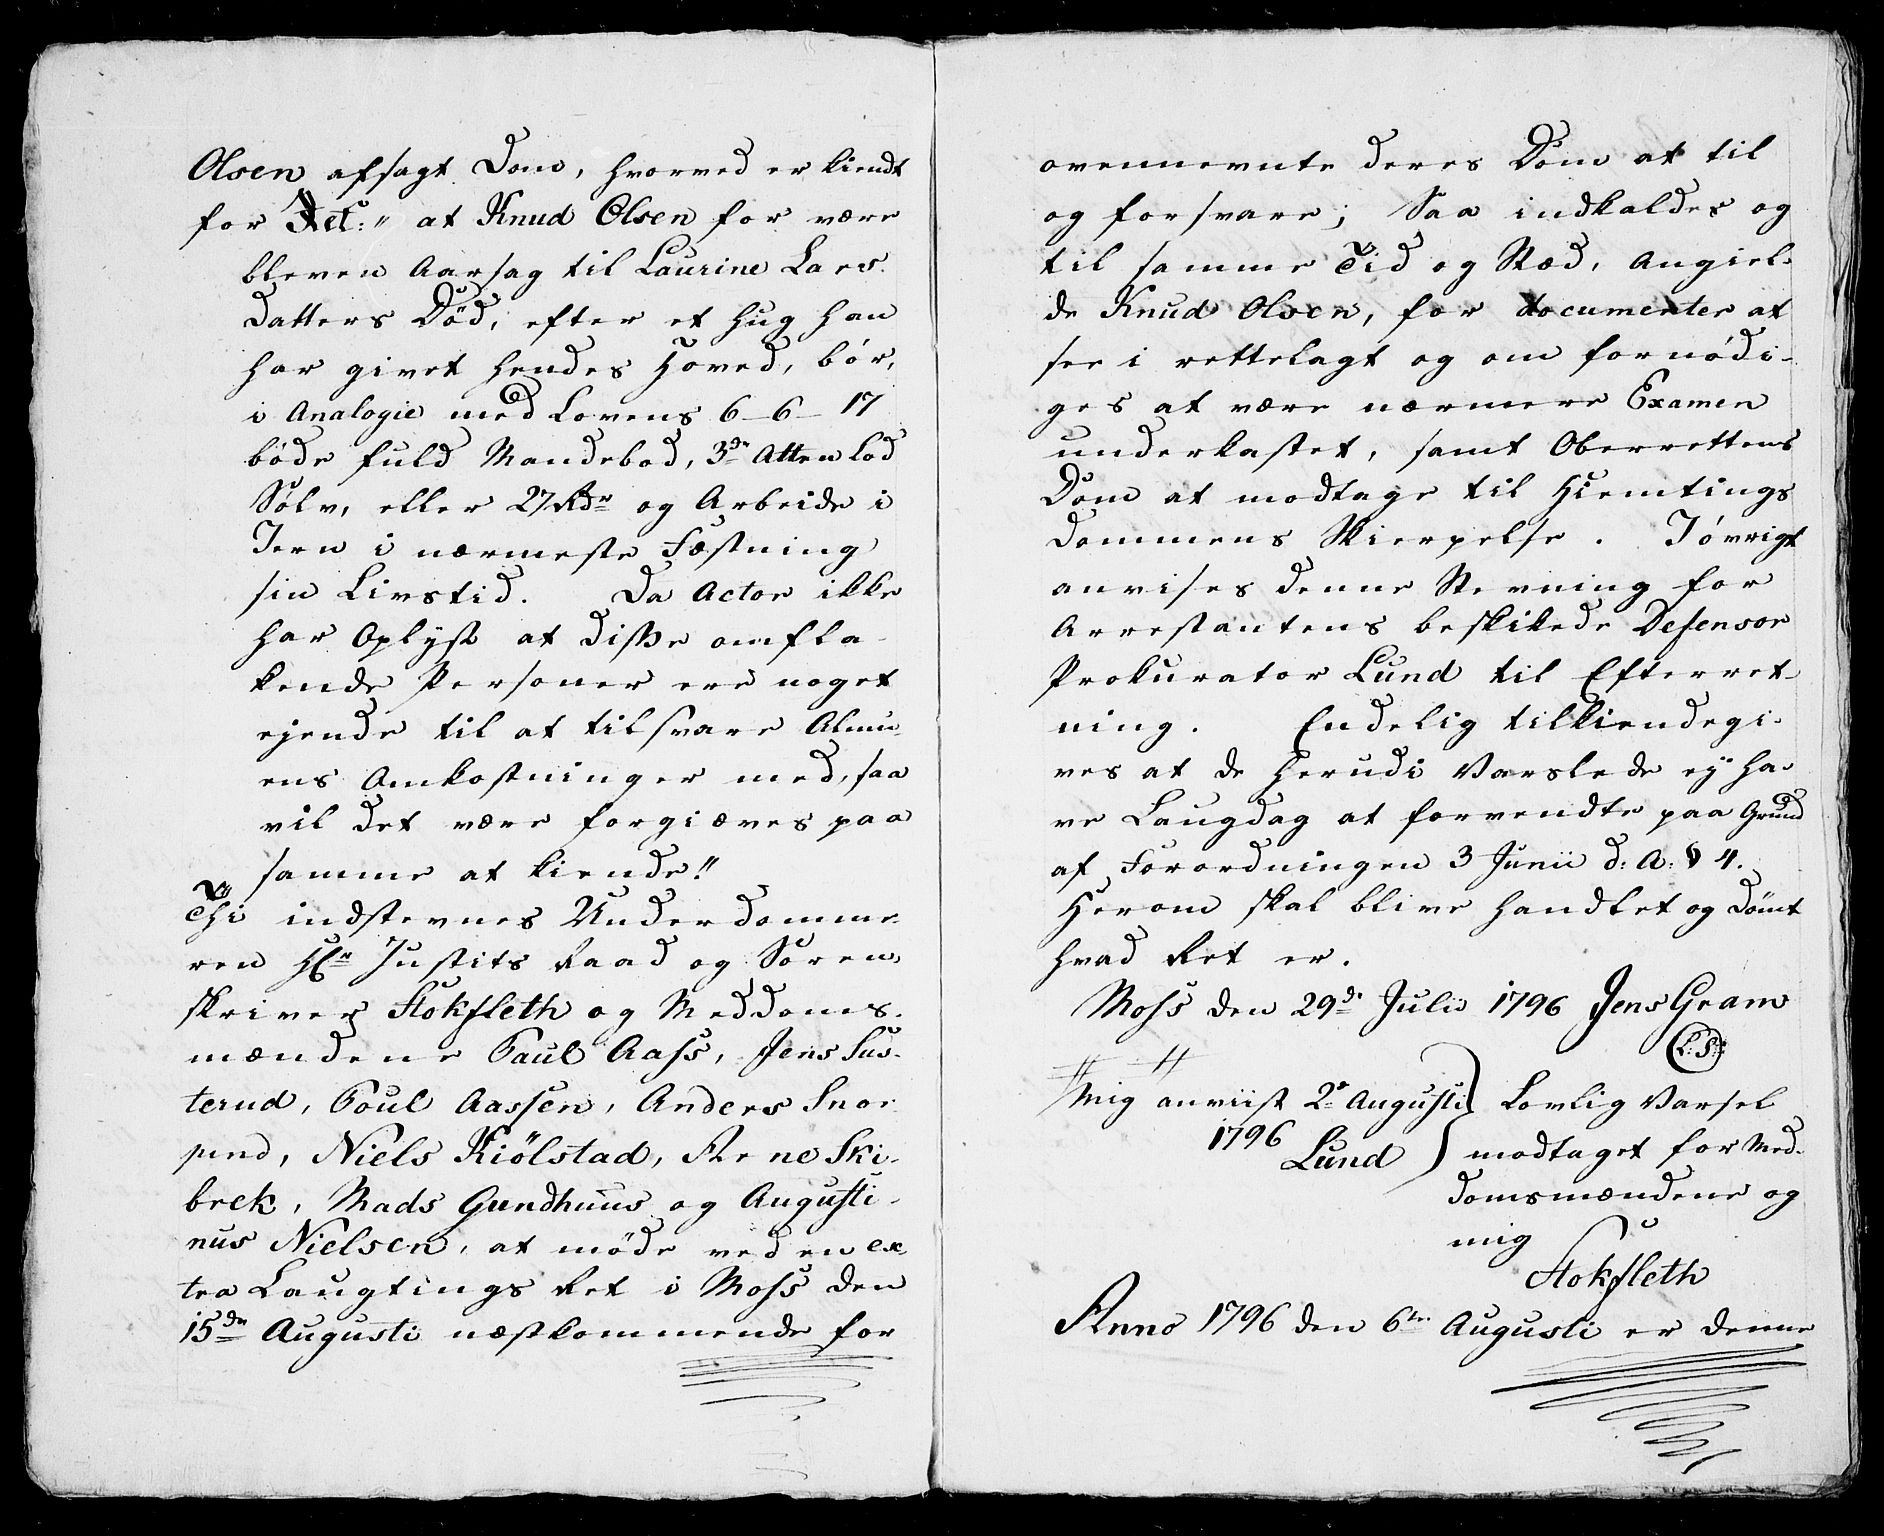 Olsen afsagt Dom, hvorved er kiendt
for Ret: „ at Knud Olsen for være
bleven Aarsag til Laurine Lars
Datters Död, efter et Hug han
har givet hendes Hoved, bör,
i Analogie med Lovens 6-6-17
böde fuld Mandebod, 3de Atten Lod
Sölv, eller 27 Rdr og Arbeide i
Jern i nærmeste Fæstning
sin Livstid. Da Actor ikke
har Oplyst at disse omfla-
kende Personer ere noget
ejende til at tilsvare Almu-
ens Omkostninger med, saa
vil det være forgiæves paa
samme at kiende!!
Thi indstevnes Underdomme-
ren Hr Justits Raad og Soren-
skriver Stokfleth og Meddoms-
mændene Paul Aass, Jens Sus-
terud, Poul Aassen, Anders Snor-
pend, Niels Kiölstad, Arne Ski-
brek, Mads Gundhuus og Augusti-
nus Nielsen, at möde ved en ex-
tra Laugtings Ret i Moss den
15de Augusti næstkommende for
ovennevnte deres Dom at til
og forsvare; Saa indkaldes og
til samme Tid og Sted, Angiel-
de Knud Olsen, for documenter at
see i rettelagt og om fornödi-
ges at være nærmere Examen
underkastet, samt Oberrettens
Dom at modtage til Hiemtings
Dommens Skierpelse. Iövrigt
anvises denne Stevning for
Arrestantens beskikede Defensor
Prokurator Lund til Efterret-
ning. Endelig tilkiendegi-
ves at de herudi Varslede ey ha-
ve Laugdag at forvendte paa Grund
af Forordningen 3 Junii d: A: § 4.
Herom skal blive handlet og dömt
hvad Ret er.
Moss den 29de Julii 1796 Jens Gram
(L:S:)
Mig anviist 2de Augusti } Lovlig Varsel
1796
Lund modtaget for Med-
domsmændene og
mig
Stokfleth
Anno 1796 den 6te Augusti er denne